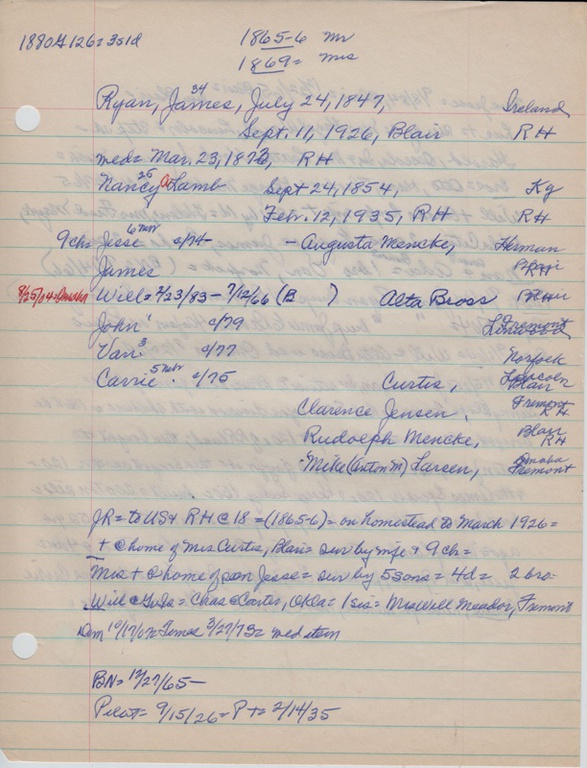 1880 # 126 = 351d
1865-6 Mr
1869 = Mrs
34
Ryan, James, July 24, 1847, Ireland
Sept. 11, 1926, Blair RH
med = Mar. 23, 1873, RH
25
Nancy Lamb Sept 24, 1854, Kg
Febr. 12, 1935, RH RH
9 ch = Jesse 6 mr c/74 - Augusta Mencke, Herman
James Blair RH
9/25/04 = Omaha Will = 2/23/83 - 7/12/66 (B ) Alta Bross Blair
John 1 c/79 Fremont
Van 3 c/77 Norfolk
Carrie 5 c/75 Curtis, Lincoln Blair
Clarence Jensen, Fremont RH
Rudolph Mencke, Blair RH
Mike (Anton M) Larsen, Omaha Fremont
JR = to US & RH @ 18 = (1865-6) = on homestead to March 1926 =
+ @ home of Mrs Curtis, Blair = sur by wife & 9 ch =
Mrs + @ home of son Jesse = sur by 5 sons = 4 d = 2 bro =
Will @ = Chas @ Carter, Okla = 1 sis = Mrs Will Meador, Fremont
Dem Times 3/27/73 = med
BN = 12/27/65 -
Pilot = 9/15/26 = P+ = 2/14/35